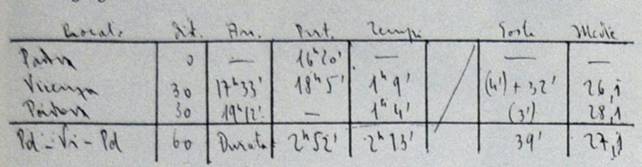 Local. Dist. Arr. Part. Tempi Soste Medie
Padova 0 — 16h20' — — —
Vicenza 30 17h33' 18h5' 1h9' (4')+32' 26,1
Padova 30 19h12' — 1h4' (3') 28,1
Pd-Vi-Pd 60 Durata 2h52' 2h13' 39' 27,1